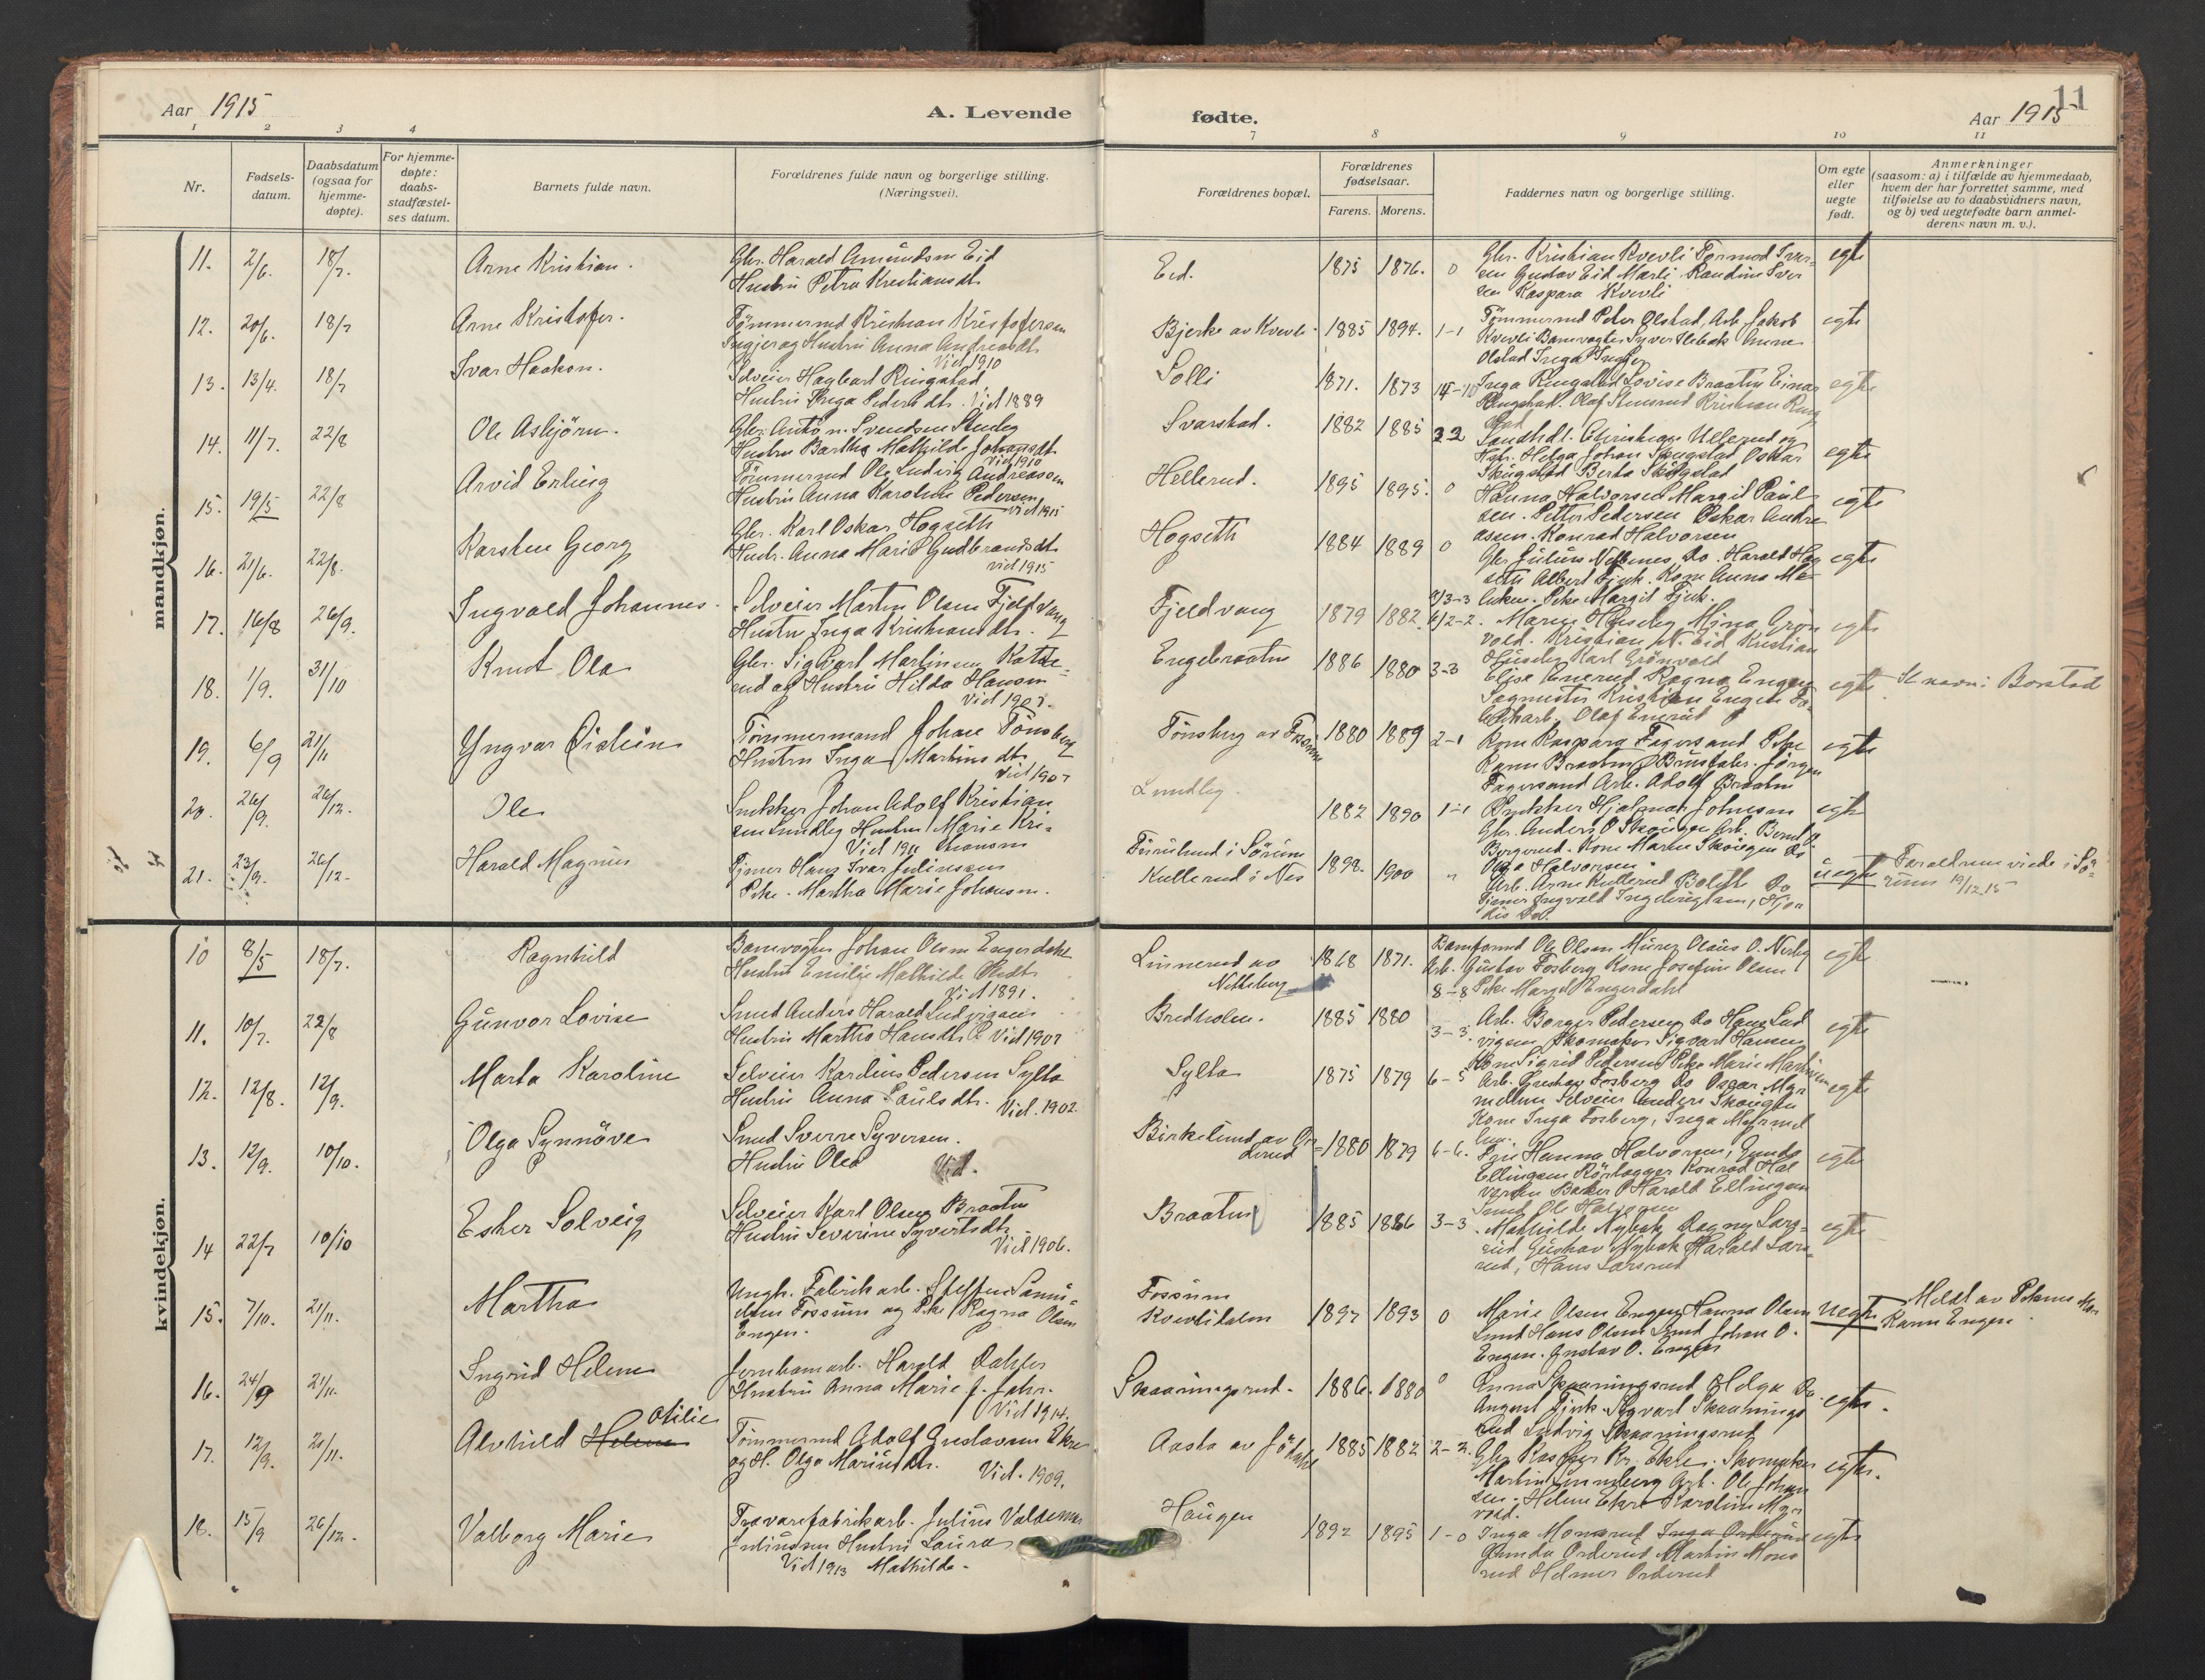 Aar 1915
A. Levende
fødte.
11
Aar 1915
1 2 3 4
7 8 9 10 11
Nr.
Fødsels-
datum.
Daabsdatum
(ogsaa for
hjemme-
døpte).
For hjemme-
døpte:
daabs-
stadfæstel-
ses datum.
Barnets fulde navn.
Forældrenes fulde navn og borgerlige stilling.
(Næringsvei).
Forældrenes bopæl.
Forældrenes
fødselsaar.
Farens. Morens.
Faddernes navn og borgerlige stilling.
Om egte
eller
uegte
født.
Anmerkninger
(saasom: a) i tilfælde av hjemmedaab,
hvem der har forrettet samme, med
tilføielse av to daabsvidners navn,
og b) ved uegtefødte barn anmel-
derens navn m. v.).
mandkjøn.
11. 2/6. 18/7. Arne Kristian. Gbr. Harald Amundsen Eid
Hustru Petra Kristiansdt.
Eid. 1875 1876. 0 Gbr. Kristian Kvevli Tormod Iver-
sen Gustav Eid Marli Randine Iver
sen Kaspara Kvevli
egte
12. 20/6. 18/7 Arne Kristofer. Tømmermd Kristian Kristofersen
og Hustru Anna Andreasdt.
Vid 1910
Bjerke av Kvevli. 1885 1894. 1-1 Tømmermd Peter Olstad, Arb. Jakob
Kvevli Banevogter Syver Anne
Olstad Inga
egte
13. 13/4. 18/7 Ivar Haakon. Selveier Hagbart Ringstad
Hustru Inga Pedersdt. Vid 1889
Solli 1871. 1873 Inga Ringstad Lovise Braaten Einar
Ringstad. Olaf Stensrud Kristian Ring
stad
egte
14. 11/7. 22/8 Ole Asbjörn. Gbr. Anton Svendsen
Hustru Barthe Mathilde Johansdt.
Vid 1910
Svarstad. 1882 1885 2 2 Landhdl. Christian Ullerud og
Hstr. Helga Johan Skugstad Oskar
Skugstad Berta Skugstad
egte
15. 19/5 22/8 Arvid Erling Tömmermd Ole Ludvig Andreassen
Hustru Anna Karoline Pedersen
Vid 1915
Hellerud. 1895 1895. 0 Hanna Halvorsen Margit Paul
sen. Petter Pedersen Oskar Andre
assen. Konrad Halvorsen
egte
16. 21/6. 22/8. Karsten Georg Gbr. Karl Oskar Hogseth
Hustr. Anna Marie Gudbrandsdt.
vid 1915
Hogseth 1884 1889 0 Gbr. Julius Do. Harald Hog
seth Albert Fjuk. Kone Anna
Pike Margit Fjuk.
egte
17. 16/8 26/9. Ingvald Johannes. Selveier Martin Olsen Fjeldvang
Hustru Inga Kristiansdt.
Fjeldvang 1879 1882 Maren Mina Grøn
vold. Kristian Eid Kristian
Karl Grönvold
egte
18. 1/9. 31/10 Knut Ola Gbr. Sigvart Martinsen
rud og Hustru Hilda Hansen
Vid 1907.
Engebraaten 1886 1880 3-3 Elise Enerud Ragna Engen
Sagmester Kristian Engen Fa-
brikarb. Olaf Enerud
egte navn: Borstad
19. 6/9 21/11 Yngvar Öistein Tömmermand Johan Tönsberg
Hustru Inga Martinsdt.
Vid 1907
Tönsberg av Fossum 1880 1889 2-1 Kone Kaspara Fagersand Pike
Karen Braaten Jörgen
Fagersand Arb. Adolf Braaten
egte
20. 26/9. 26/12. Ole Snekker Johan Adolf Kristian
sen Lundby Hustru Marie Kri-
Vid 191 stiansen
Lundby. 1882 1890 1-1 Snekker Hjalmar Johnsen
Gbr. Anders O Skougen Arb. Bernt
Bergerud. Kone Maren Skougen Do
Olga Halvorsen
egte
21. 23/9. 26/12. Harald Magnus Tjener Hans Ivar Juliussen
Pike. Martha Marie Johansen.
Furulund i Sörum
Kullerud i Nes
1898. 1900 " Arb. Arne Kullerud Bolette Do
Tjener Ingvald Hjör
dis Do.
uegte Foræeldrene viede i Sö-
rum 19/12 15
kvindekjøn.
10 8/5 18/7. Ragnhild Banevogter Johan Olsen Engerdahl
Hustru Emilie Mathilde
Vid 1891.
Linnerud av
Nettelberg
1868 1871. Baneformd Ole Olsen Murer Olaus O. Nerby
Arb. Gustav Fosberg Kone Josefine Olsen
8-8 Pike Margit Engerdahl
egte
11. 10/7. 22/8 Gunvor Lovise Smed Anders Harald Ludvigsen
Hustru Martha Hansdt. Vid 1907
Bredholen. 1885 1880 3-3. Arb. Borger Pedersen Do Hans Lud
vigsen Skomaker Sigvart Hansen
Kone Sigrid Pedersen Pike Marie Martinsen
egte
12. 12/8. 12/9. Marta Karoline Selveier Karelius Pedersen Sylta
Hustru Anna Paulsdt. Vid. 1902
Sylta 1875 1879 6-5 Arb. Gustav Fosberg Do Oscar Myr
mellem Selveier Anders Skougen
Kone Inga Fosberg, Inga Myrmel
len.
egte
13. 12/9. 10/10. Olga Synnöve Smed Sverre Syversen.
Hustru Olea Vid.
Birkelund av Or
derud
1880 1879 6-6. Frue Hanna Halvorsen, Gunda
Ellingsen Rörlægger Konrad Hal
vorsen Baker Harald Ellingsen
Smed Ole Halvorsen
egte
14 22/7 10/10 Esther Solveig Selveier Karl Olsen Braaten
Hustru Severine Syvertsdt.
Vid 1906.
Braaten 1885 1886 3-3 Mathilde Nybak Dagny Lars-
rud Gustav Nybak Harald Lars-
rud, Hans Larsrud
egte
15. 7/10. 21/11. Martha Ungk. Fabrikarb. Steffen Samu-
elsen Fossum og Pike Ragna Olsen
Engen.
Fossum
Kvevlidalen
1892 1893 0 Marie Olsen Engen Hanna Olsen
Smed Hans Olsen Smed Johan O.
Engen. Gustav O. Engen
uegte Meldt av Pikens Mor
Karen Engen.
16. 24/9 21/11. Ingrid Helene Jernbanearb. Harald Dahler
Hustru Anna Marie J. Johr.
Vid 1914.
Skaaningsrud. 1886. 1880 0 Enna Skaaningsrud Helga Do.
August Fjuk. Sigvart Skaanings
rud Ludvig Skaaningsrud
egte.
17. 12/9. 21/11. Alvhild Helene Otilie Tömmermd Adolf Gustavsen Ekre
og H. Olga Mariusdt.
Vid. 1909.
Aasta av 1885 1882 2-2. Gbr. Kasper Kr. Ekre. Skomaker
Martin Lundberg Arb. Ole Johan
sen. Helene Ekre Karoline Myr
vold.
egte.
18. 15/9 26/12. Valborg Marie Trævarefabrikarb. Julius Valdemar
Juliussen Hustru Laura
Vid 1913 Mathilde.
Haugen 1892 1895 1-0 Inga Monsrud Inga Orderud
Gunda Orderud Martin Mons
rud Helmer Orderud
egte